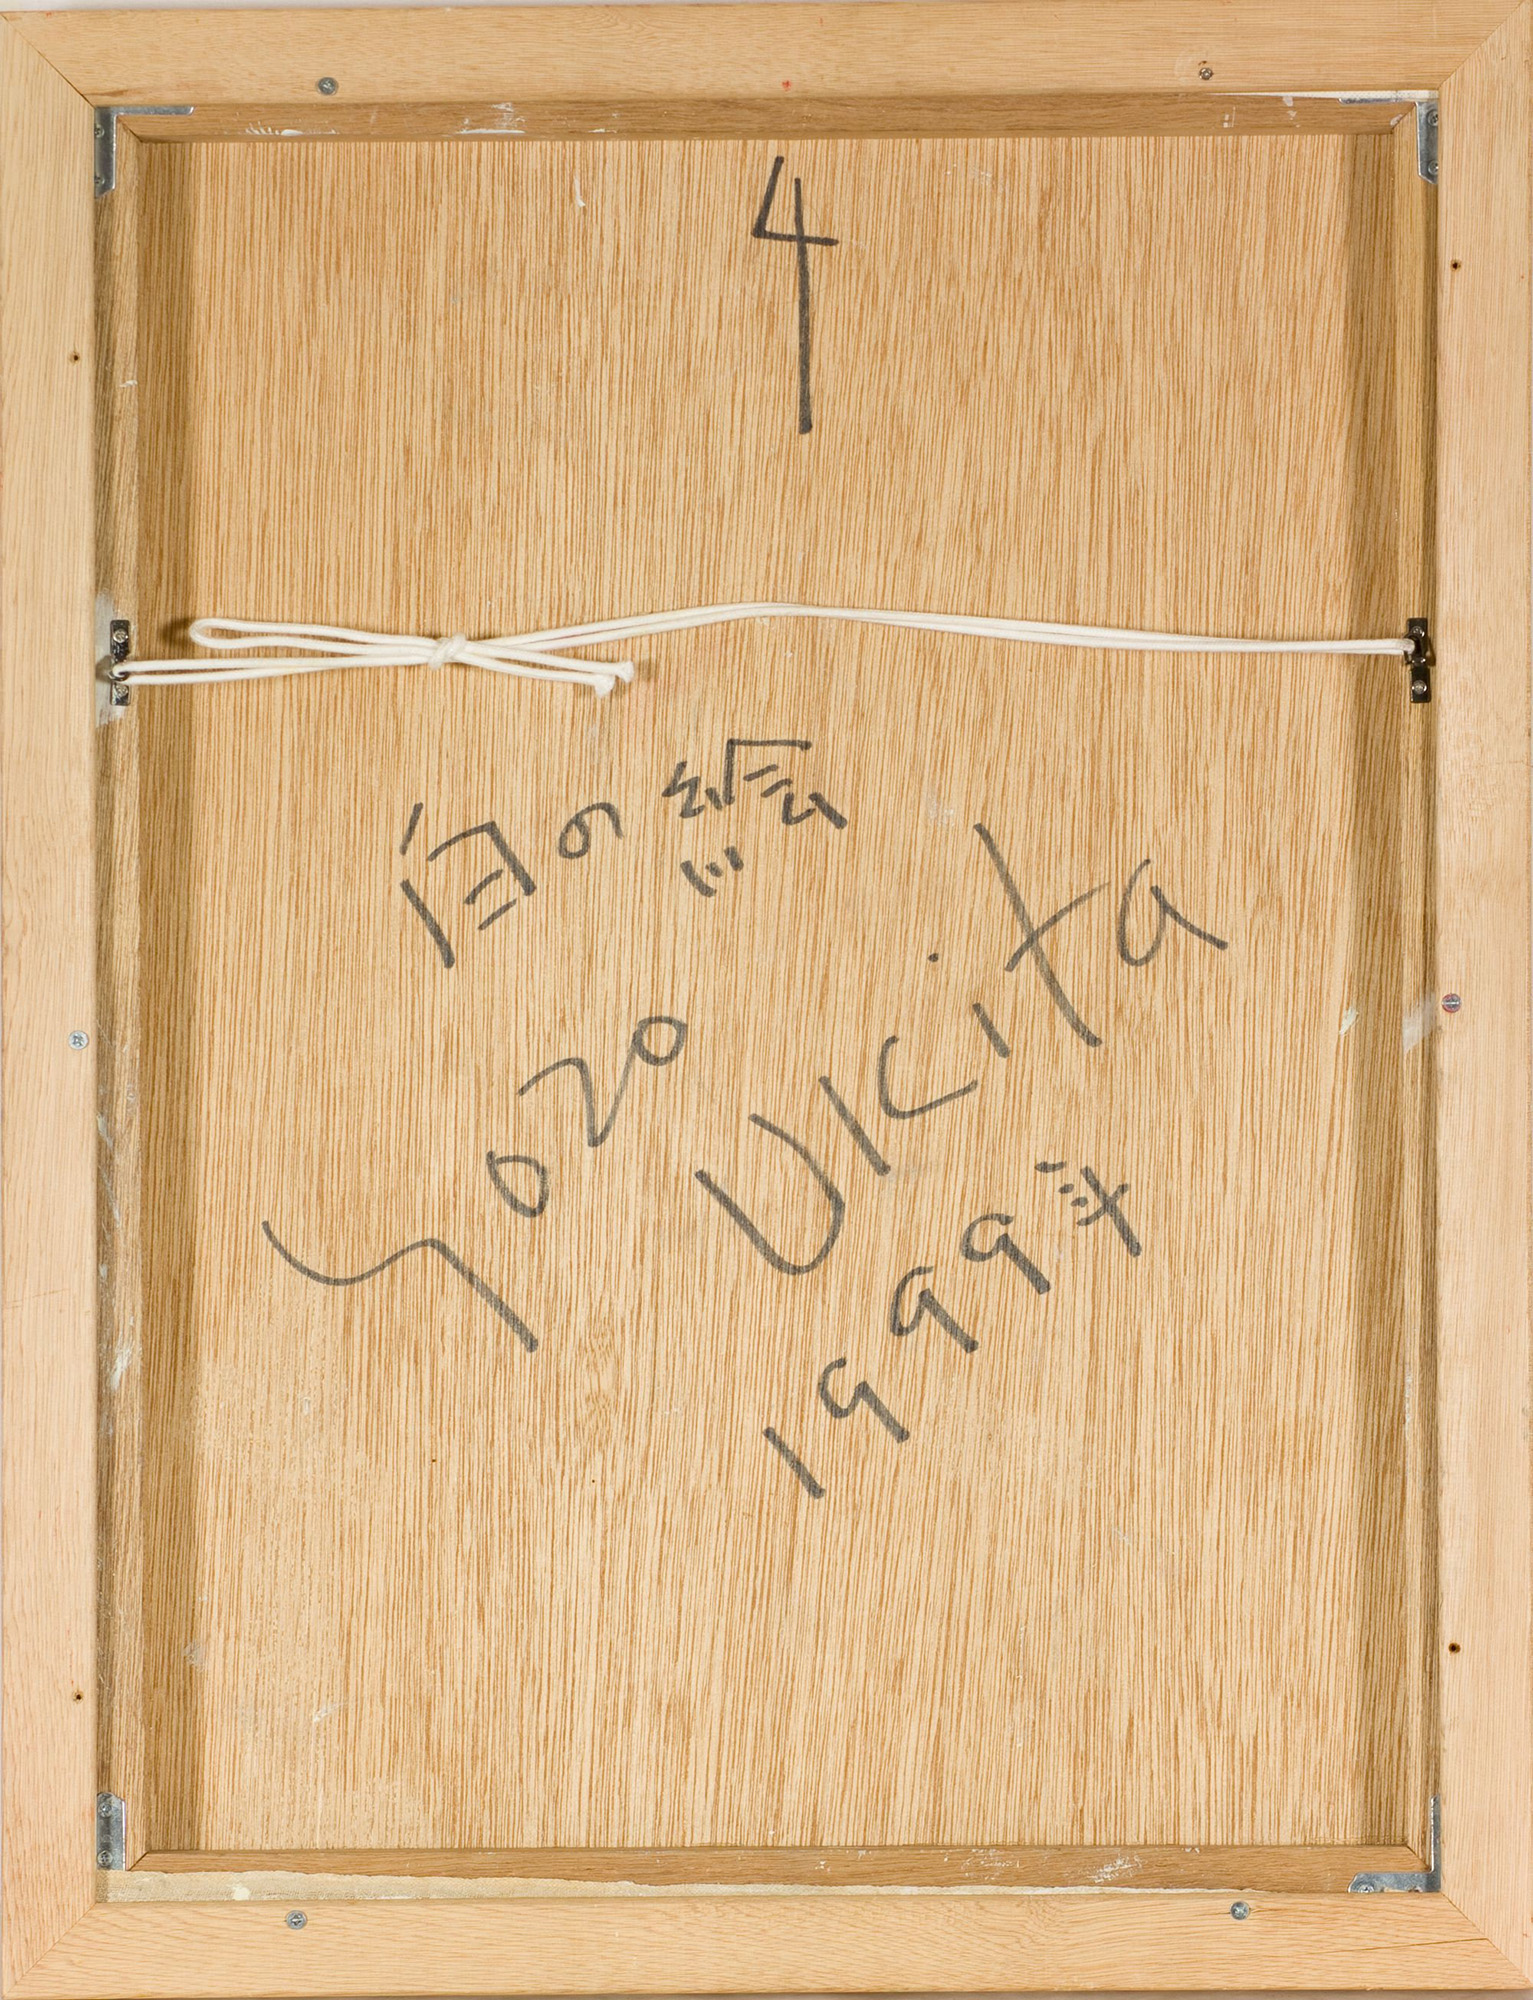 4
白の絵
Yozo
Ukita
1999年